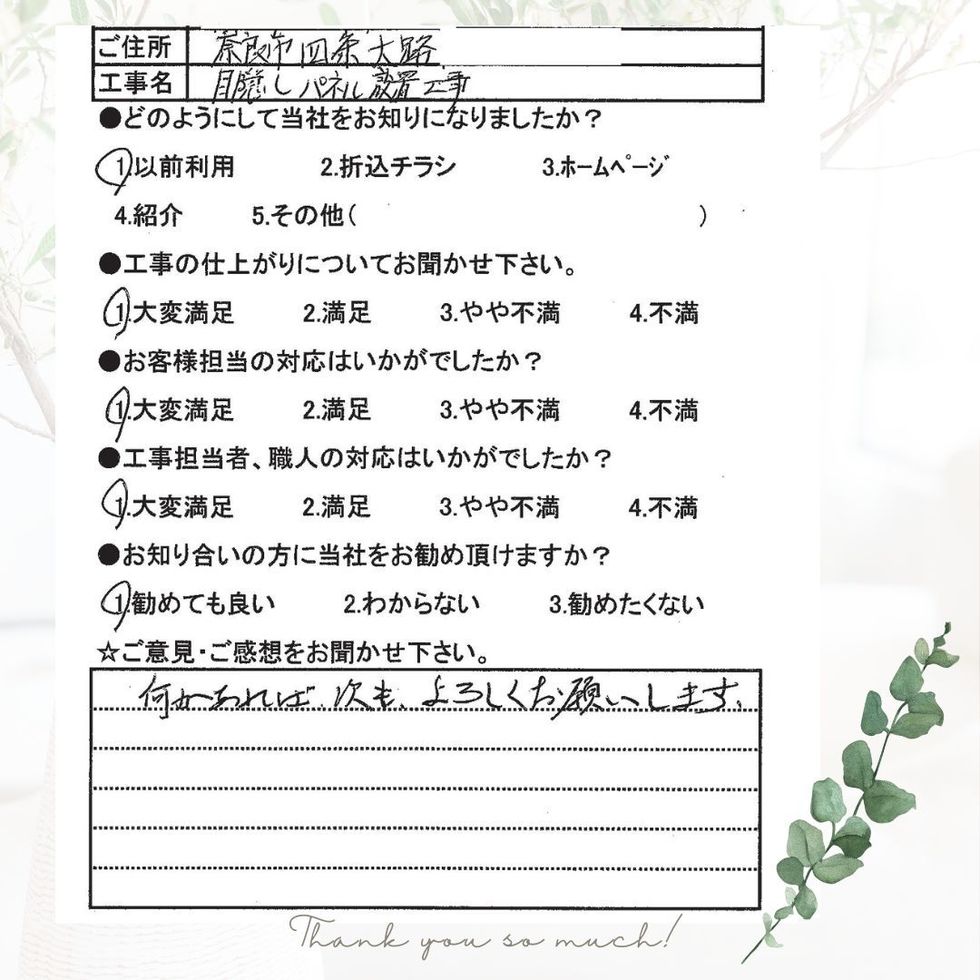 ご住所 奈良市四条大路
工事名 目隠しパネル設置工事
●どのようにして当社をお知りになりましたか？
1.以前利用 2.折込チラシ 3.ホームページ
4.紹介 5.その他( )
●工事の仕上がりについてお聞かせ下さい。
1.大変満足 2.満足 3.やや不満 4.不満
●お客様担当の対応はいかがでしたか？
1.大変満足 2.満足 3.やや不満 4.不満
●工事担当者、職人の対応はいかがでしたか？
1.大変満足 2.満足 3.やや不満 4.不満
●お知り合いの方に当社をお勧め頂けますか？
1.勧めても良い 2.わからない 3.勧めたくない
☆ご意見・ご感想をお聞かせ下さい。
何かあれば、次も、よろしくお願いします。
Thank you so much!